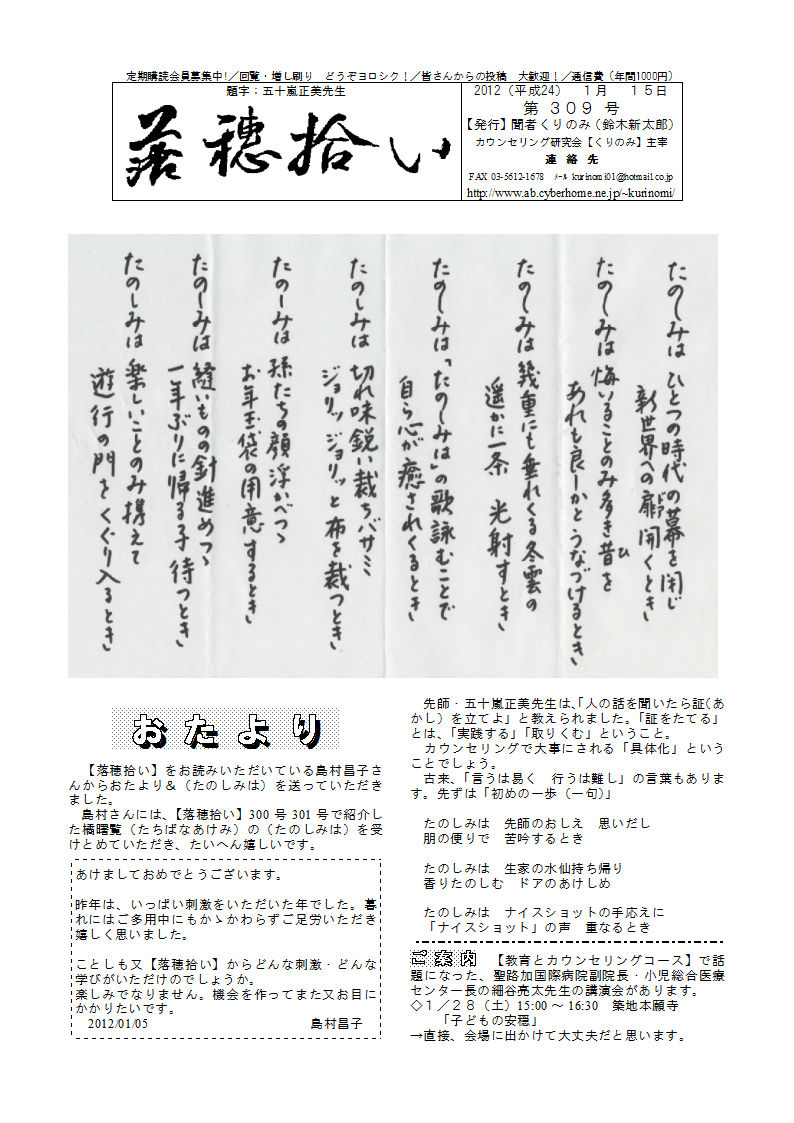 定期購読会員募集中!／回覧・増し刷り　どうぞヨロシク！／皆さんからの投稿　大歓迎！／通信費（年間1000円）
題字：五十嵐正美先生
落穂拾い
2012（平成24）　１月　１５日
第 309 号
【発行】聞者くりのみ（鈴木新太郎）
カウンセリング研究会【くりのみ】主宰
連　絡　先
FAX 03-5612-1678　ﾒｰﾙ kurinomi01@hotmail.co.jp
http://www.ab.cyberhome.ne.jp/~kurinomi/
たのしみは ひとつの時代の幕を閉じ
新世界への扉開くとき
たのしみは 悔いることのみ多き昔を
ひ
あれも良しかとうなづけるとき
たのしみは 幾重にも垂れくる冬雲の
遥かに一条　光射すとき
たのしみは「たのしみは」の歌詠むことで
自ら心が癒されくるとき
たのしみは 切れ味鋭い裁ちバサミ
ジョリッ ジョリッと布を裁つとき
たのしみは 孫たちの顔浮かべつゝ
お年玉袋の用意するとき
たのしみは 縫いものの針進めつゝ
一年ぶりに帰る子待つとき
たのしみは 楽しいことのみ携えて
遊行の門をくぐり入るとき
おたより
【落穂拾い】をお読みいただいている島村昌子さ
んからおたより＆（たのしみは）を送っていただき
ました。
島村さんには、【落穂拾い】300 号 301 号で紹介し
た橘曙覧（たちばなあけみ）の（たのしみは）を受
けとめていただき、たいへん嬉しいです。
あけましておめでとうございます。
昨年は、いっぱい刺激をいただいた年でした。暮
れにはご多用中にもかゝかわらずご足労いただき
嬉しく思いました。
ことしも又【落穂拾い】からどんな刺激・どんな
学びがいただけのでしょうか。
楽しみでなりません。機会を作ってまた又お目に
かかりたいです。
2012/01/05　　　島村昌子
先師・五十嵐正美先生は、「人の話を聞いたら証（あ
かし）を立てよ」と教えられました。「証をたてる」
とは、「実践する」「取りくむ」ということ。
カウンセリングで大事にされる「具体化」という
ことでしょう。
古来、「言うは易く　行うは難し」の言葉もありま
す。先ずは「初めの一歩（一句）」
たのしみは　先師のおしえ　思いだし
朋の便りで　苦吟するとき
たのしみは　生家の水仙持ち帰り
香りたのしむ　ドアのあけしめ
たのしみは　ナイスショットの手応えに
「ナイスショット」の声　重なるとき
ご案内　【教育とカウンセリングコース】で話
題になった、聖路加国際病院副院長・小児総合医療
センター長の細谷亮太先生の講演会があります。
◇１／２８（土）15:00 ～ 16:30　築地本願寺
「子どもの安穏」
→直接、会場に出かけて大丈夫だと思います。